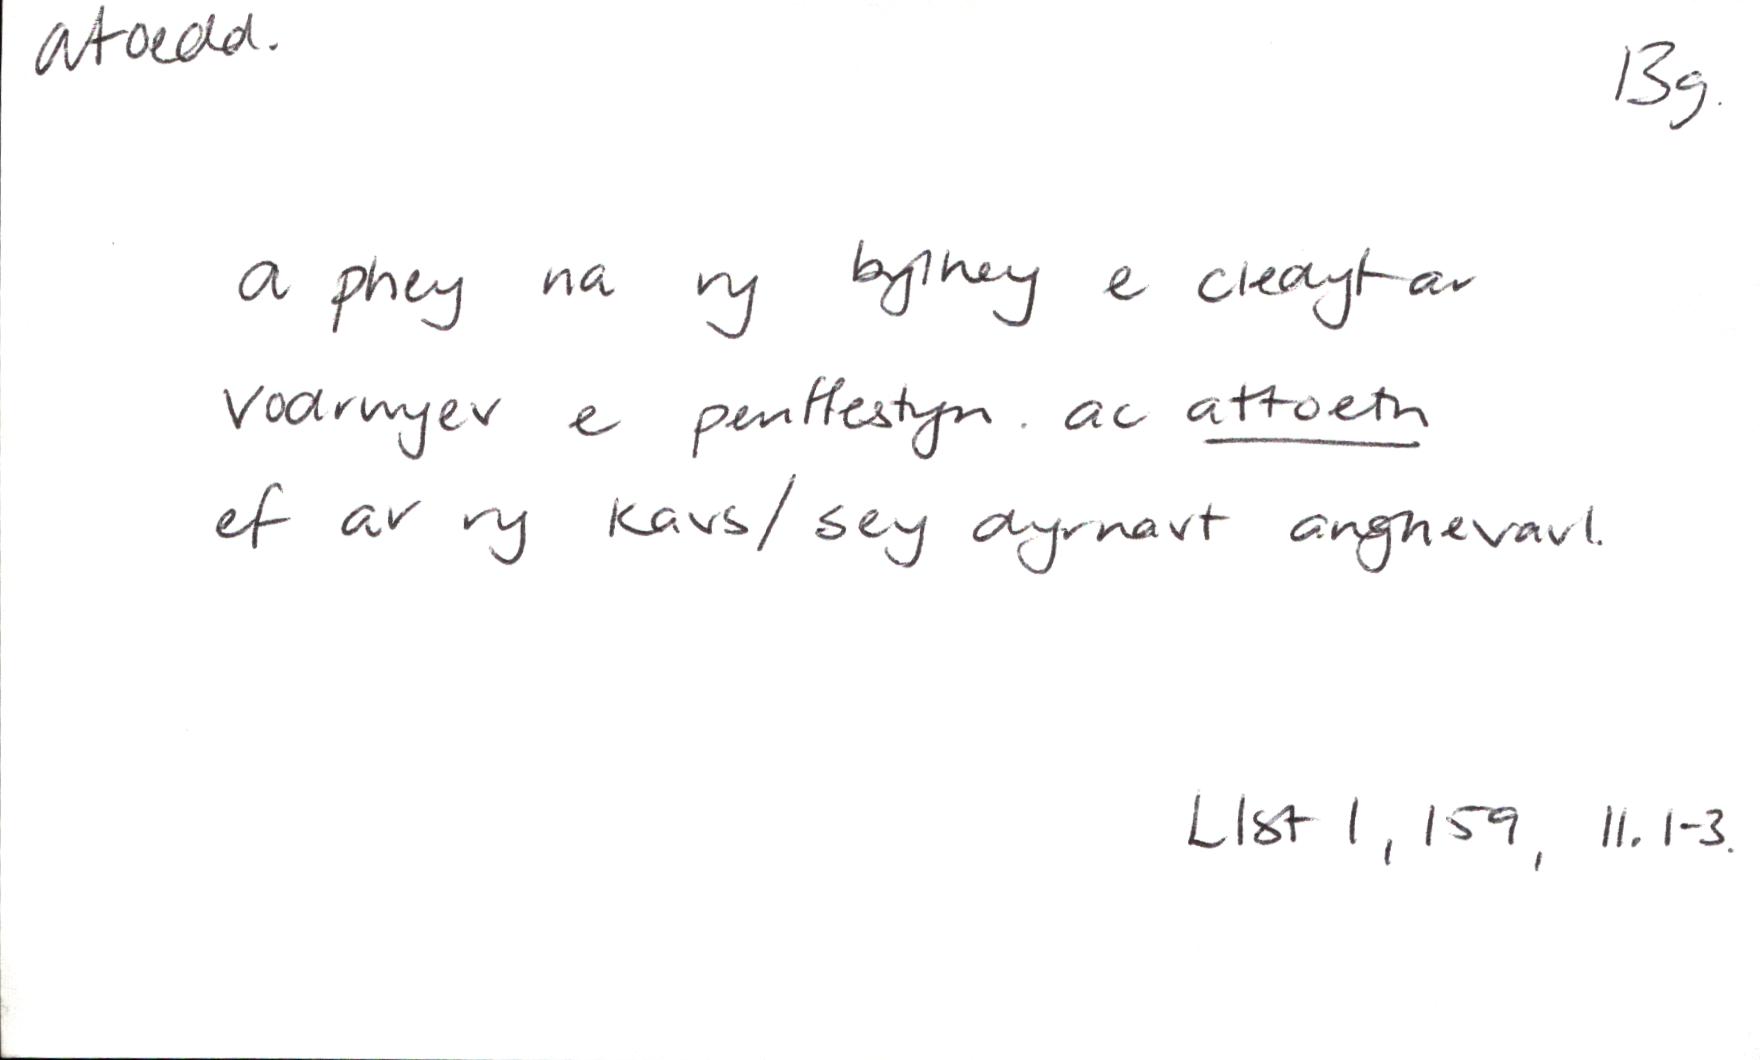 atoedd.
13g.
a phey na ry bylhey e cledyf ar
vodrwyev e penffestyn. ac attoeth
ef ar ry kavs/sey dyrnavt anghevavl.
Llst 1, 159, ll. 1-3.